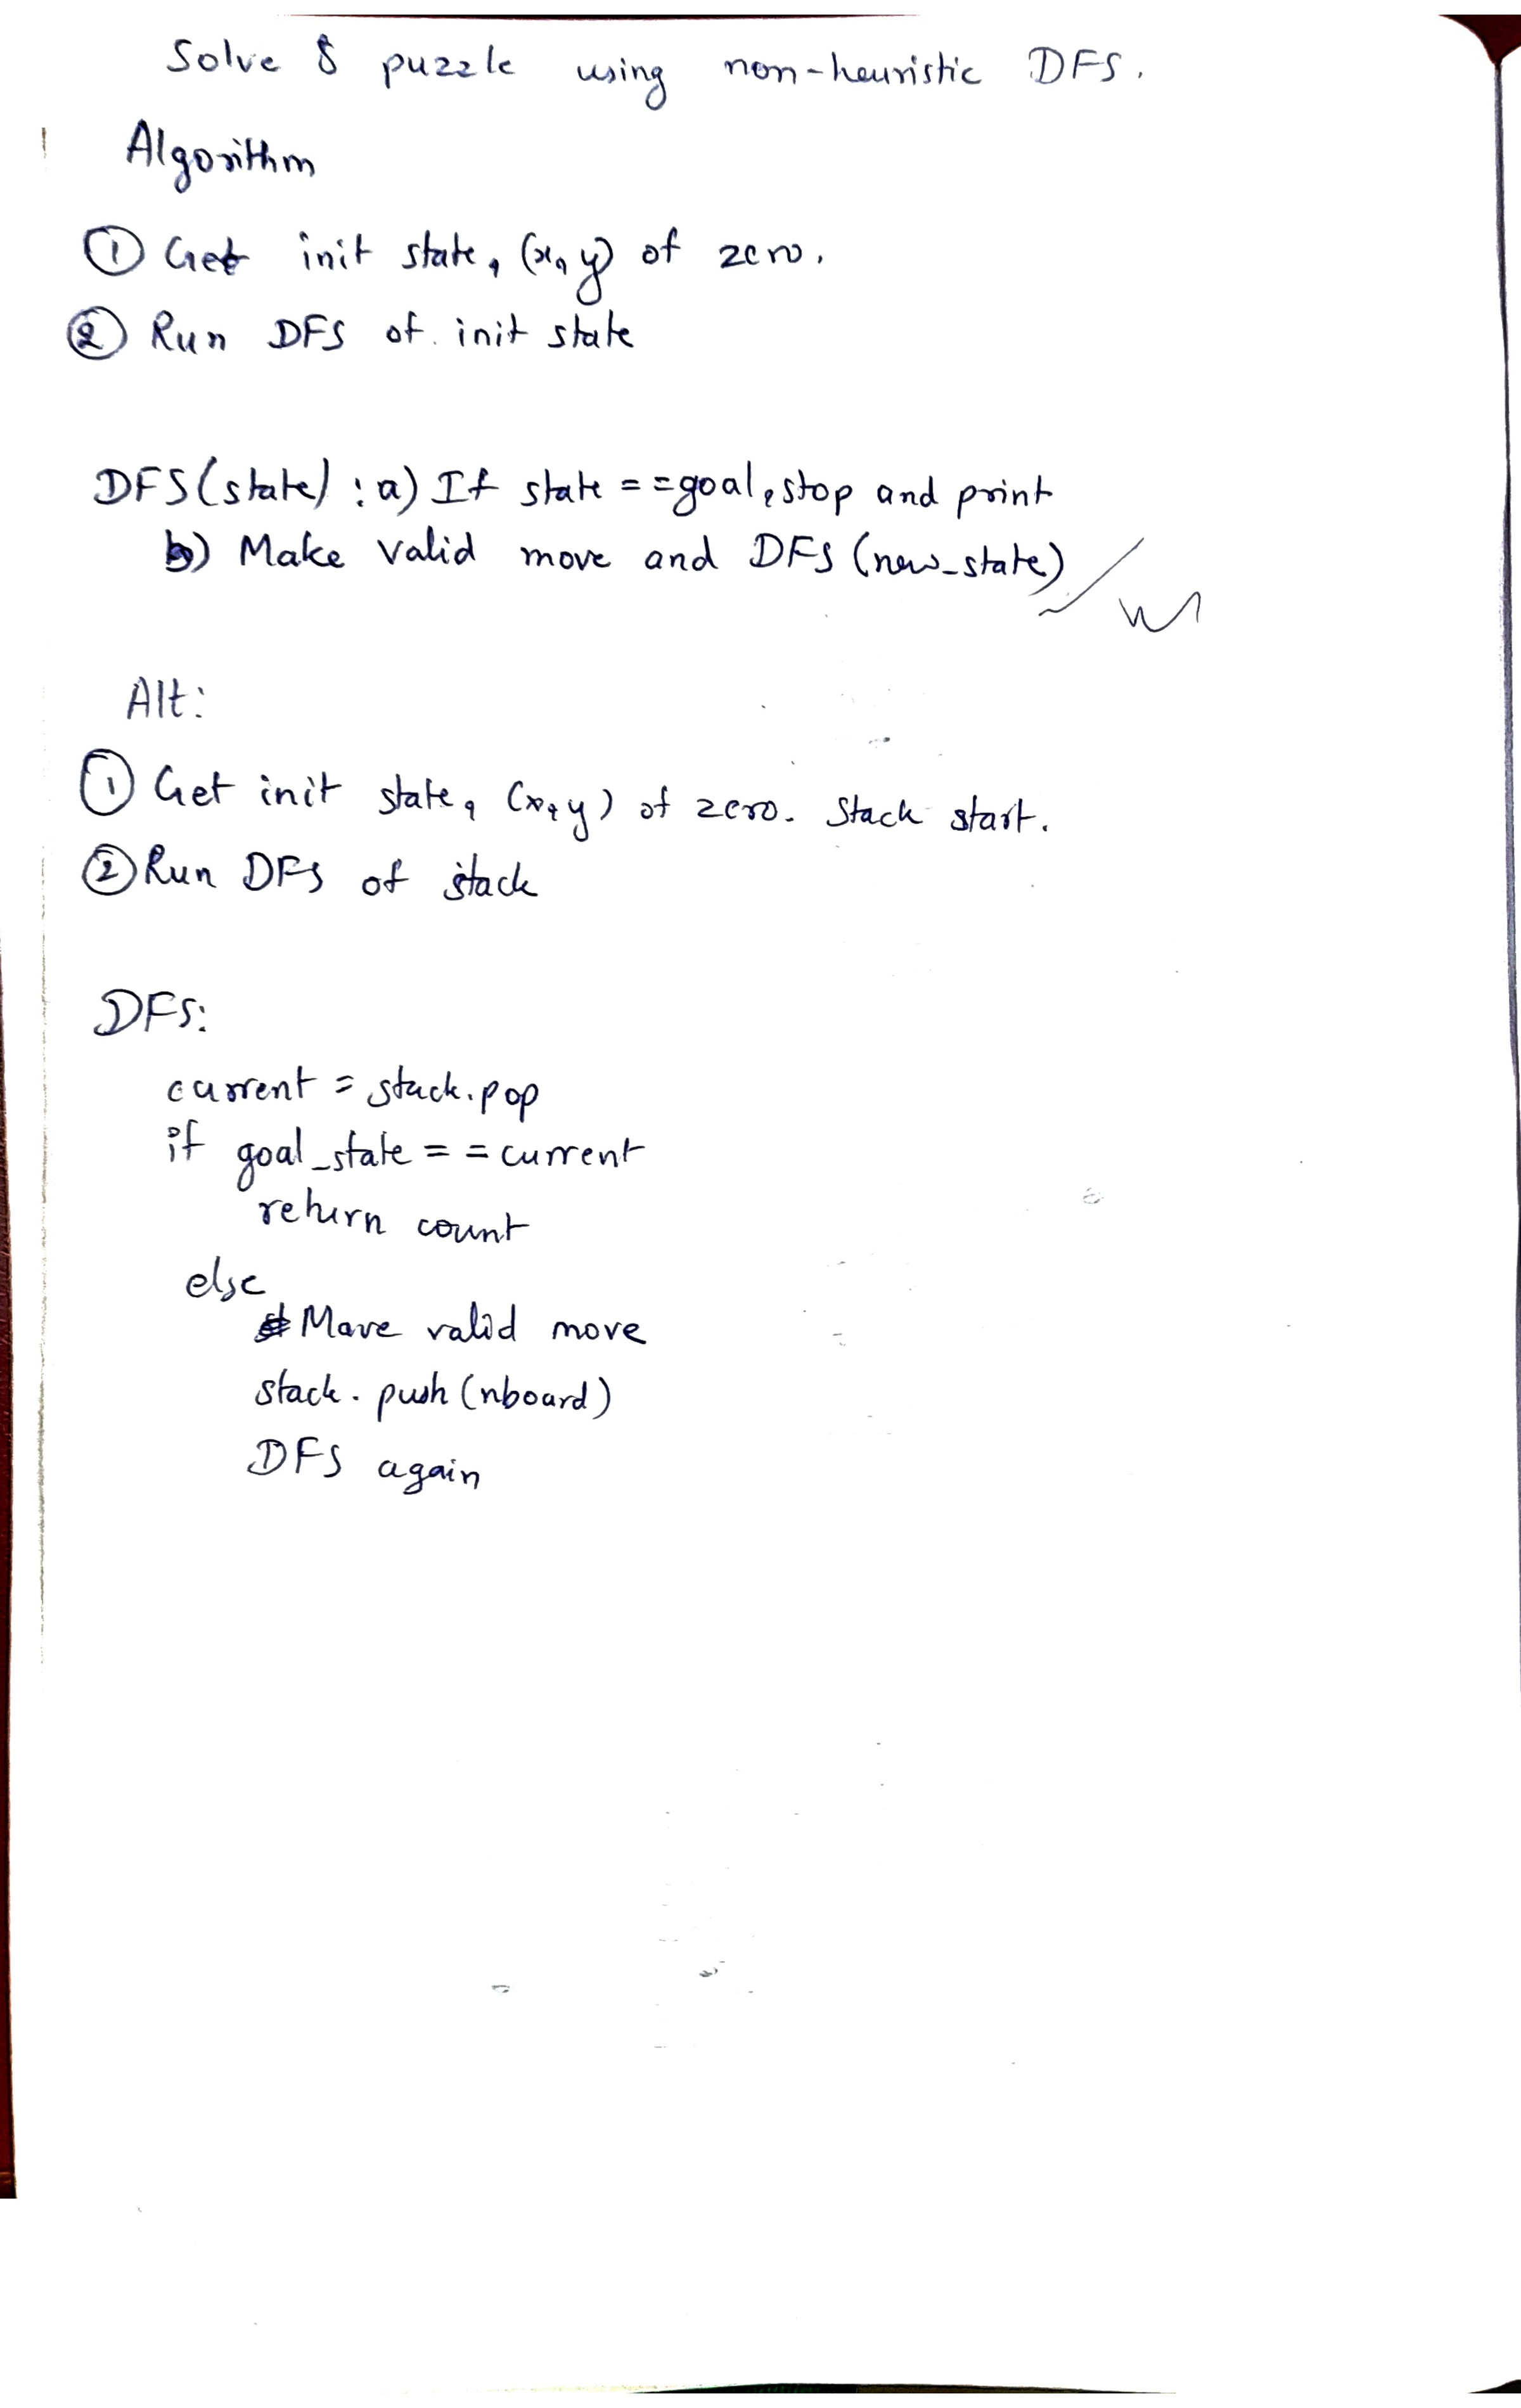 Solve 8 puzzle using non-heuristic DFS.
Algorithm
① Get init state, (x, y) of zero.
② Run DFS of init state
DFS(state) : a) If state == goal, stop and print
b) Make valid move and DFS (new_state)
Alt:
① Get init state, (x, y) of zero. Stack start.
② Run DFS of stack
DFS:
current = stack.pop
if goal_state == current
return count
else
Move valid move
stack.push(nboard)
DFS again